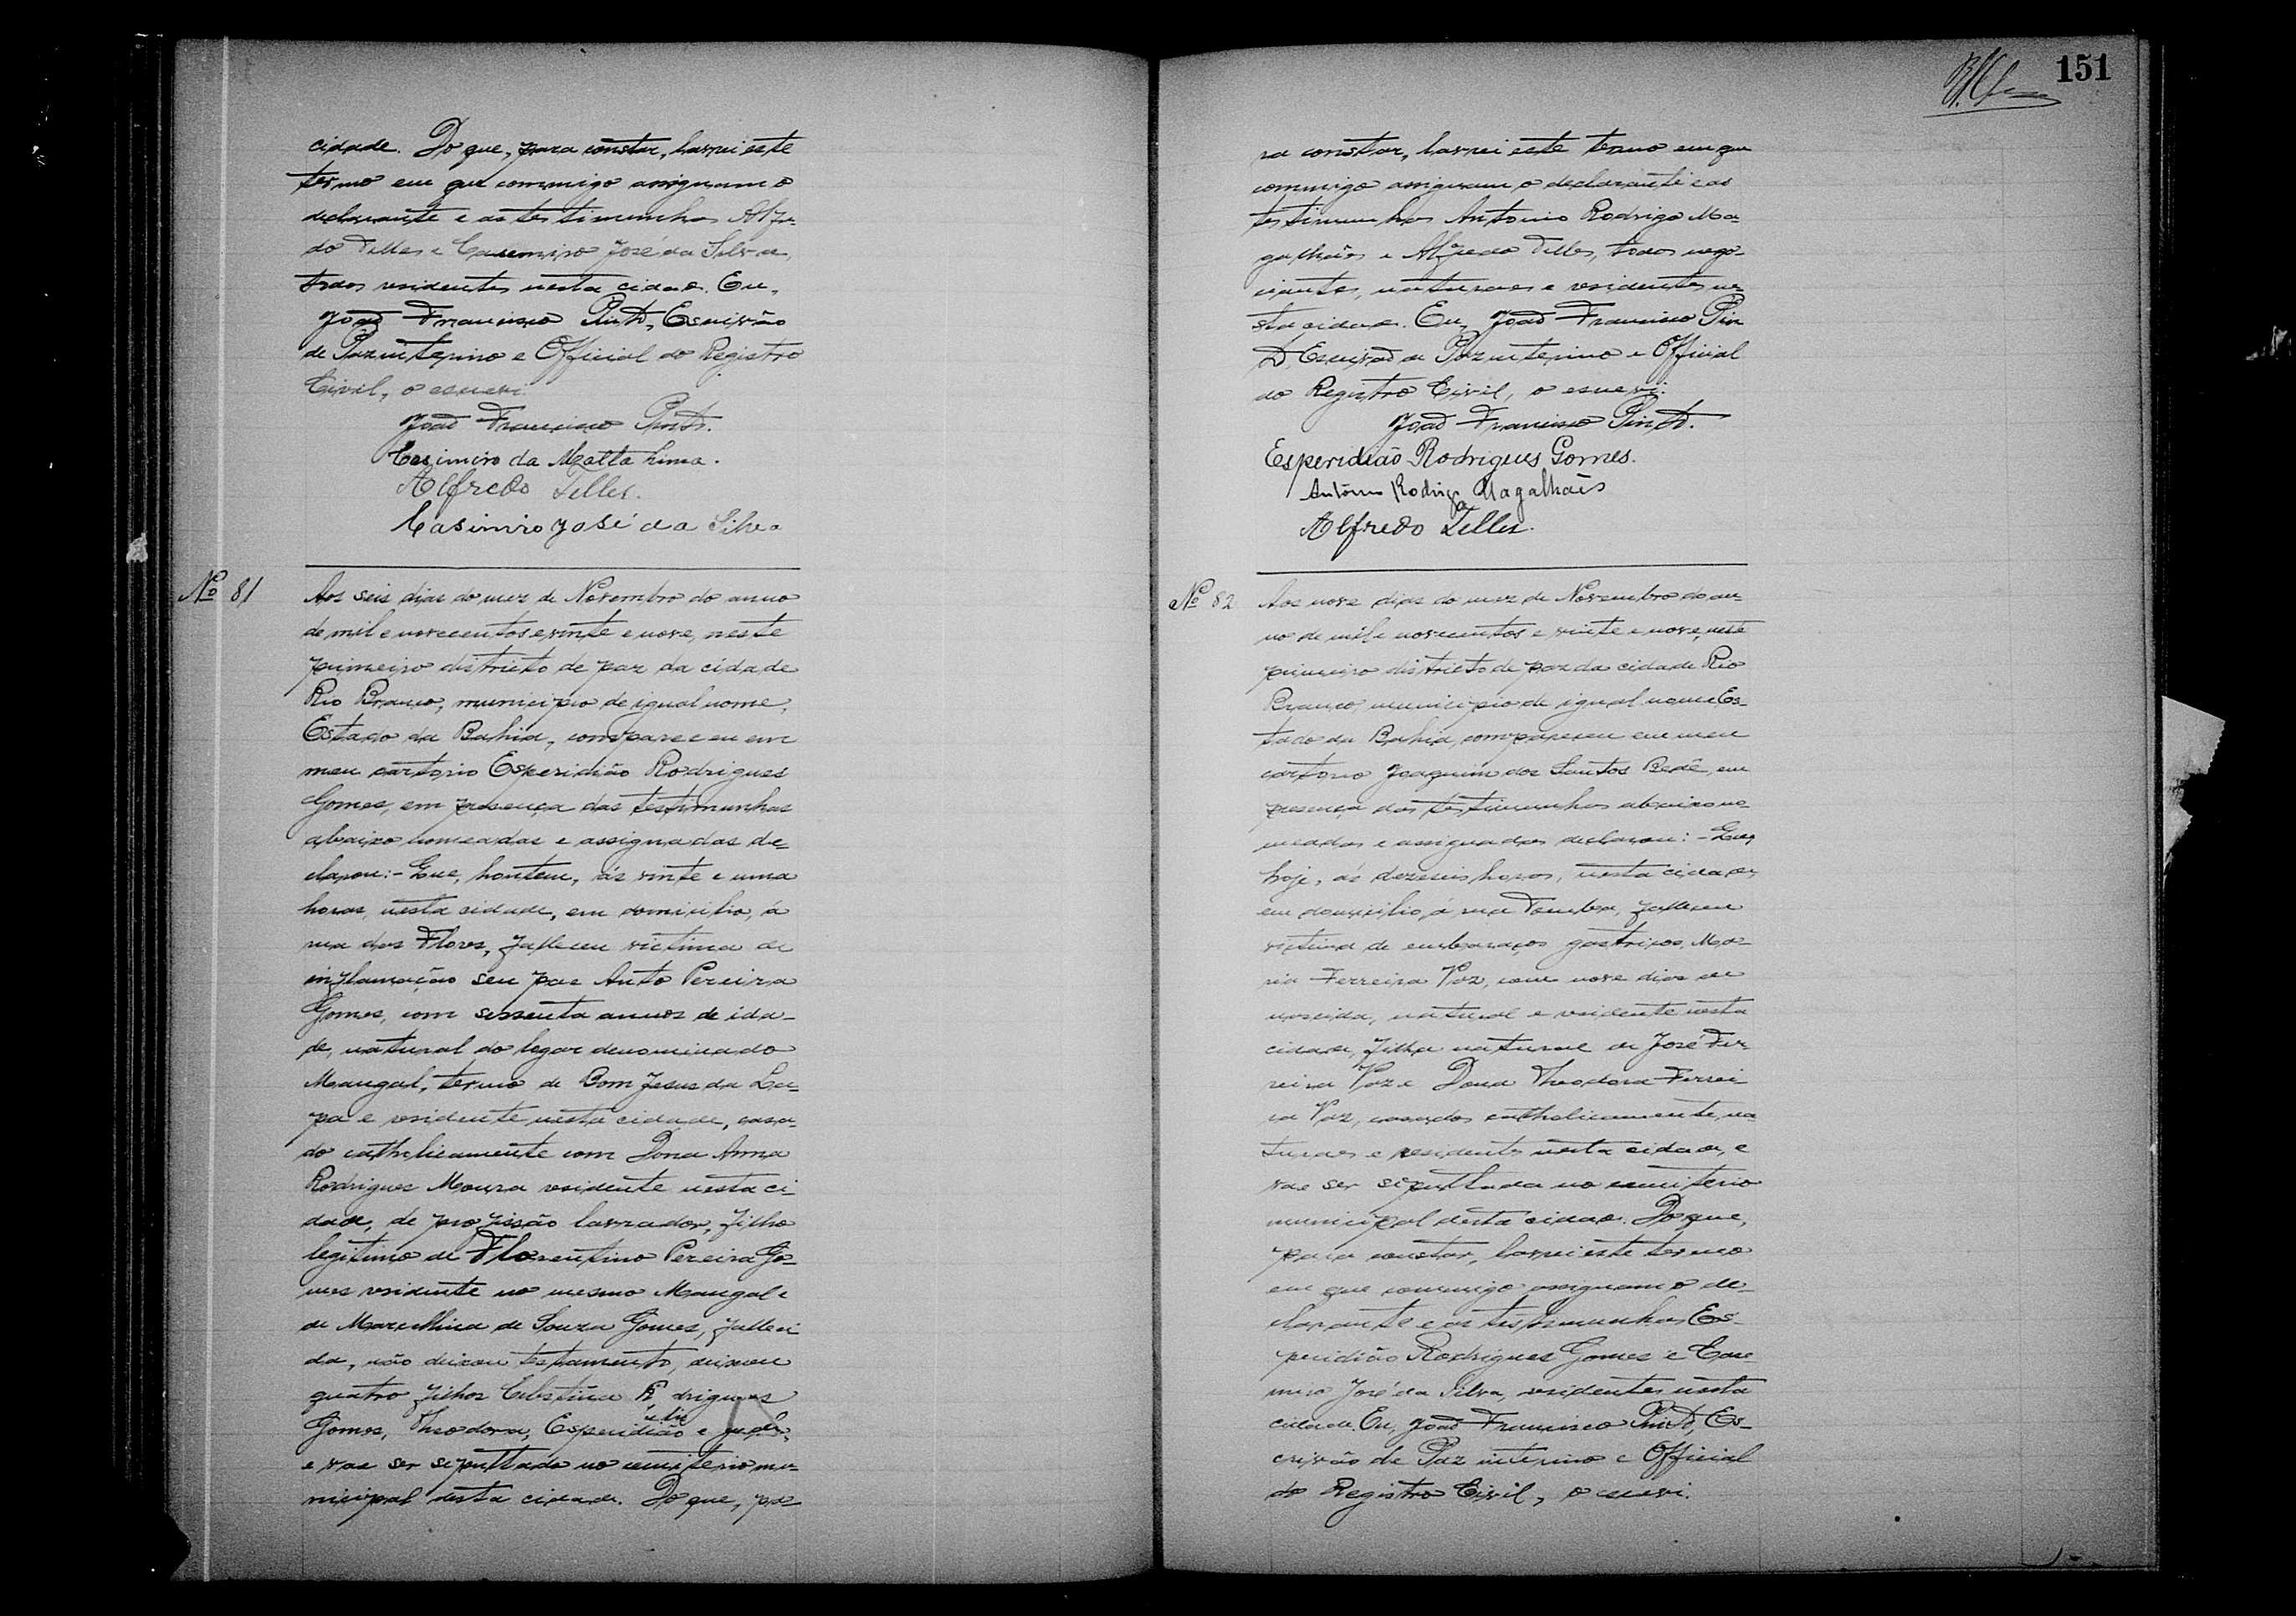 cidade. Do que, para constar, lavrei este
termo em que commigo assignam o
declarante e as testimunhas Alfre-
do Telles e Casemiro José da Silva,
todos residentes nesta cidade. Eu,
João Francisco Pinto, Escrivão
de Paz interino e Official do Registro
Civil, o escrevi.
João Francisco Pinto.
Casimiro da Matta Lima.
Alfredo Telles.
Casimiro José da Silva
Nº 81
Aos seis dias do mez de Novembro do anno
de mil e novecentos e vinte e nove, neste
primeiro districto de paz da cidade
Rio Branco, municipio de igual nome,
Estado da Bahia, compareceu em
meu cartorio Esperidião Rodrigues
Gomes, em presença das testimunhas
abaixo nomeadas e assignadas de-
clarou:- Que, hontem, ás vinte e uma
horas, nesta cidade, em domicilio, á
rua das Flores, falleceu victima de
inflamação seu pae Anto Pereira
Gomes, com sessenta annos de ida-
de, natural do logar denominado
Mangal, termo de Bom Jesus da La-
pa e residente nesta cidade, casa-
do catholicamente com Dona Anna
Rodrigues Moura residente nesta ci-
dade, de profissão lavrador, filho
legitimo de Florentino Pereira Go-
mes residente no mesmo Mangal e
de Marcellina de Souza Gomes, falleci-
da, não deixou testamento, deixou
quatro filhos Celestina Rodrigues
Gomes, Theodora, Esperidião e
e vae ser sepultado no cemiterio mu-
nicipal desta cidade. Do que, pa-
151
ra constar, lavrei este termo em que
commigo assignam o declarante e as
testimunhas Antonio Rodrigo Ma-
galhães e Alfredo Telles, todos nego-
ciantes, naturaes e residentes ne-
sta cidade. Eu, João Francisco Pin
to, Escrivão de Paz interino e Official
do Registro Civil, o escrevi.
João Francisco Pinto.
Esperidião Rodrigues Gomes.
Antônio Rodrigo Magalhães
Alfredo Telles.
Nº 82
Aos nove dias do mez de Novembro do an-
no de mil e novecentos e vinte e nove, neste
primeiro districto de paz da cidade Rio
Branco, municipio de igual nome Es-
tado da Bahia, compareceu em meu
cartorio Joaquim dos Santos Bedê, em
presença das testimunhas abaixo no-
meadas e assignadas declarou: - Que,
hoje, ás dezeseis horas, nesta cidade,
em domicilio, á rua Tomba, falleceu
victima de embaraços gastricos, Ma-
ria Ferreira Vaz, com nove dias de
nascida, natural e residente nesta
cidade, filha natural de José Fer-
reira Vaz e Dona Theodora Ferrei
ra Vaz, casados catholicamente, na-
turaes e residentes nesta cidade, e
vae ser sepultada no cemiterio
municipal desta cidade. Do que,
para constar, lavrei este termo
em que commigo assignam o de-
clarante e as testimunhas Es-
peridião Rodrigues Gomes e Case
miro José da Silva, residentes nesta
cidade. Eu, João Francisco Pinto, Es-
crivão de Paz interino e Official
do Registro Civil, o escrevi.